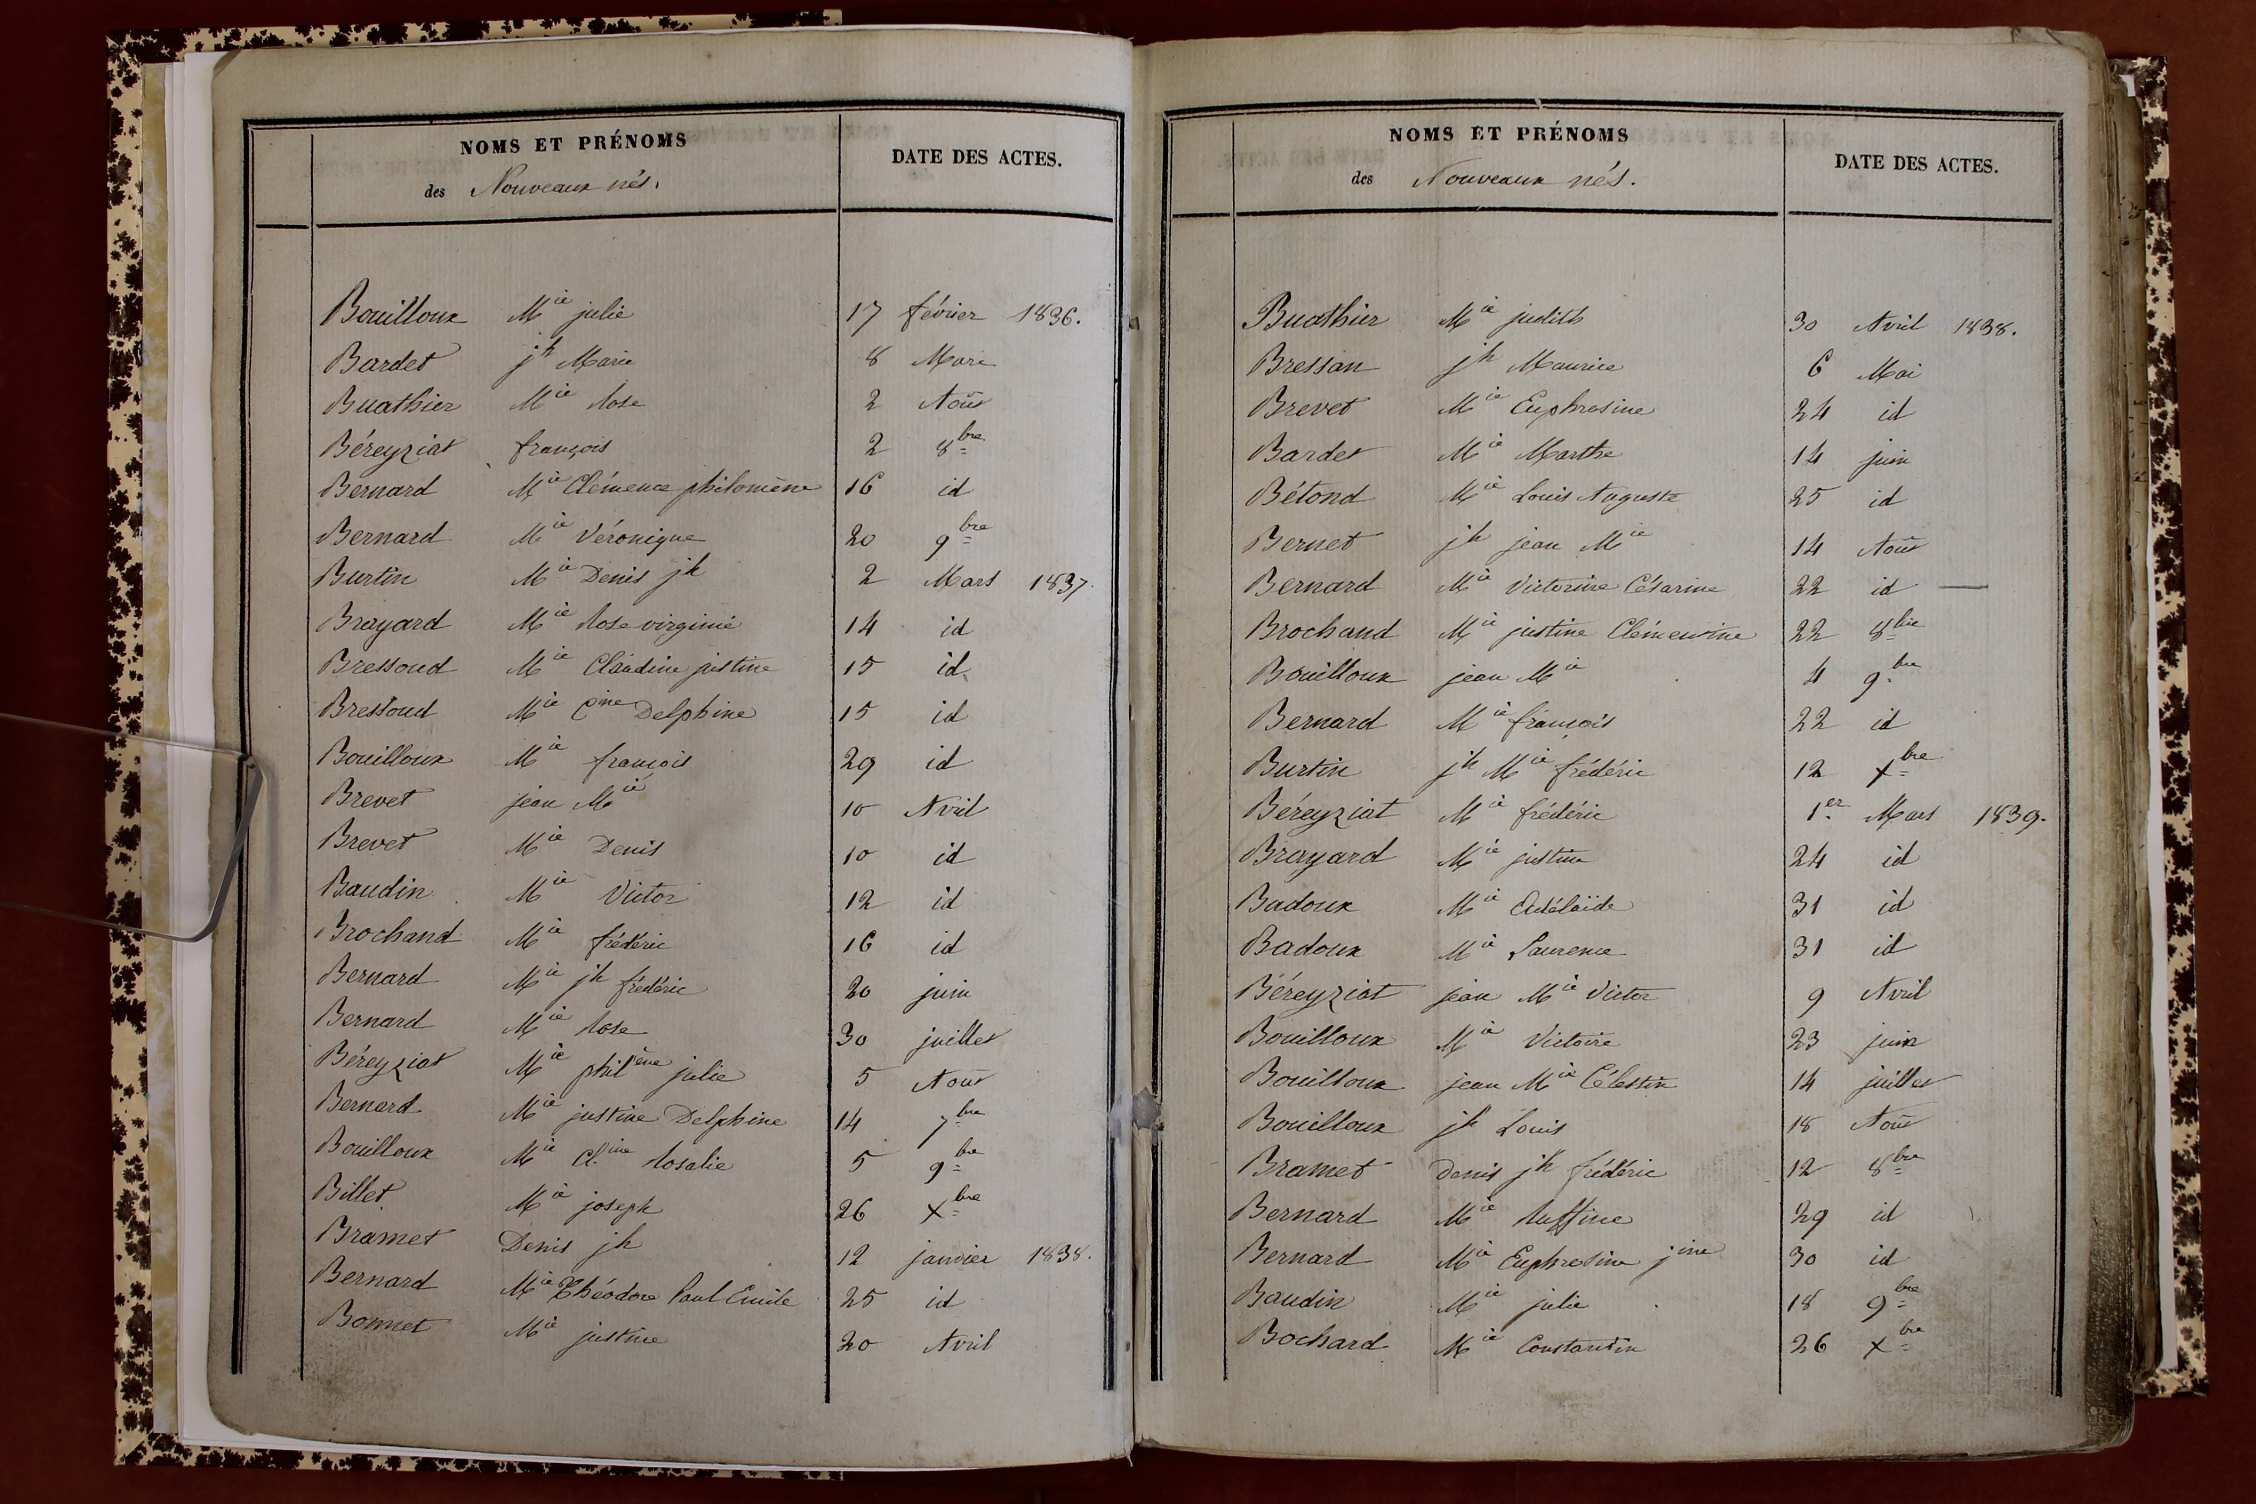 NOMS ET PRÉNOMS
DATE DES ACTES.
des Nouveaux nés.
Bouilloux Mie julie 17 février 1836.
Bardet jh Marie 8 Mars
Buathier Mie Rose 2 Août
Béreyziat françois 2 8bre
Bernard Mie Clémence philomène 16 id
Bernard Mie Véronique 20 9bre
Burtin Mie Denis jh 2 Mars 1837.
Brayard Mie Rose virginie 14 id
Bressoud Mie Claudine justine 15 id
Bressoud Mie Cine Delphine 15 id
Bouilloux Mie françois 29 id
Brevet jean Mie 10 Avril
Brevet Mie Denis 10 id
Baudin Mie Victor 12 id
Brochand Mie frédéric 16 id
Bernard Mie jh frédéric 20 juin
Bernard Mie Rose 30 juillet
Béreyziat Mie philène julie 5 Août
Bernard Mie justine Delphine 14 7bre
Bouilloux Mie Cl.ine Rosalie 5 9bre
Billet Mie joseph 26 Xbre
Bramet Denis jh 12 janvier 1838.
Bernard Mie Théodore Paul Emile 25 id
Bonnet Mie justine 20 Avril
NOMS ET PRÉNOMS
DATE DES ACTES.
des Nouveaux nés.
Buathier Mie judith 30 Avril 1838.
Bressan jh Maurice 6 Mai
Brevet Mie Euphrosine 24 id
Bardet Mie Marthe 14 juin
Bétond Mie Louis Auguste 25 id
Bernet jh jean Mie 14 Août
Bernard Mie Victorine Césarine 22 id —
Brochand Mie justine Clémentine 22 8bre
Bouilloux jean Mie 4 9bre
Bernard Mie françois 22 id
Burtin jh Mie frédéric 12 Xbre
Béreyziat Mie frédéric 1er Mars 1839.
Brayard Mie justin 24 id
Badoux Mie Adélaïde 31 id
Badoux Mie Laurence 31 id
Béreyziat jean Mie Victor 9 Avril
Bouilloux Mie Victoire 23 juin
Bouilloux jean Mie Célestin 14 juillet
Bouilloux jh Louis 18 Août
Bramet Denis jh frédéric 12 8bre
Bernard Mie Ruffine 29 id
Bernard Mie Euphrosine jine 30 id
Baudin Mie julie 18 9bre
Bochard Mie Constantin 26 Xbre